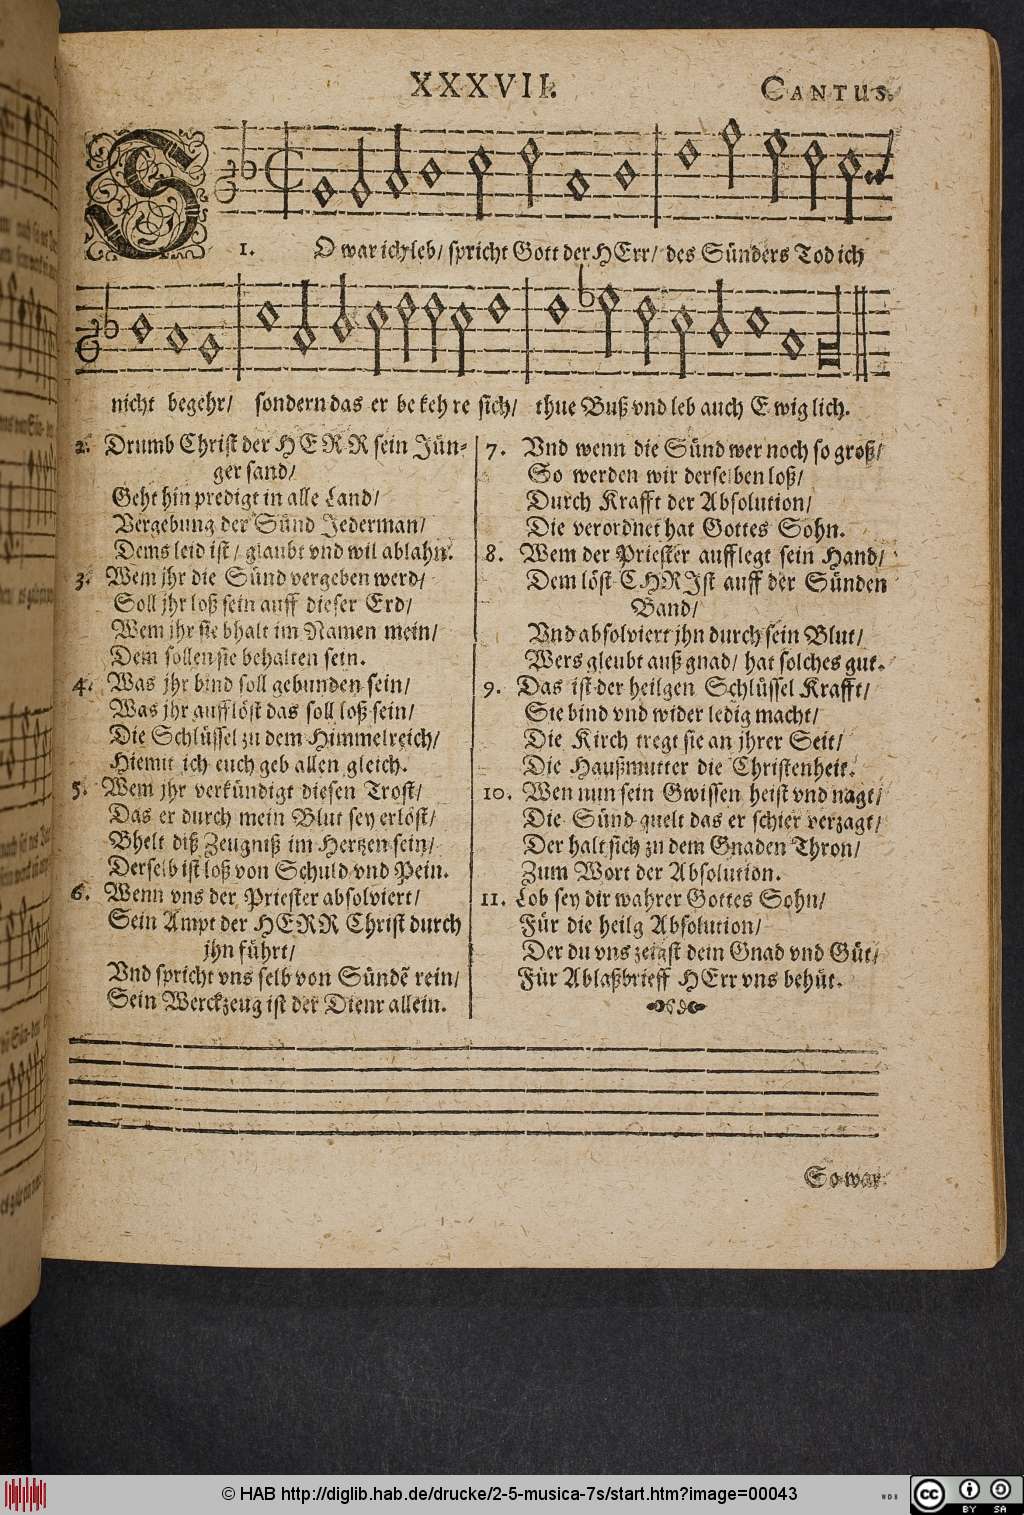 XXXVII.
CANTUS.
SO war ich leb/ spricht Gott der HErr/ des Sünders Tod ich
1.
nicht begehr/ sondern das er bekehre sich/ thue Buß vnd leb auch Ewiglich.
2. Drumb Christ der HERR sein Jün-
ger sand/
Geht hin predigt in alle Land/
Vergebung der Sünd Jederman/
Dems leid ist/ glaubt vnd wil ablahn.
3. Wem jhr die Sünd vergeben werd/
Soll jhr loß sein auff dieser Erd/
Wem jhr sie bhalt im Namen mein/
Dem sollen sie behalten sein.
4. Was jhr bind soll gebunden sein/
Was jhr aufflöst das soll loß sein/
Die Schlüssel zu dem Himmelreich/
Hiemit ich euch geb allen gleich.
5. Wem jhr verkündigt diesen Trost/
Das er durch mein Blut sey erlöst/
Bhelt diß Zeugniß im Hertzen sein/
Derselb ist loß von Schuld vnd Pein.
6. Wenn vns der Priester absolviert/
Sein Ampt der HERR Christ durch
jhn führt/
Vnd spricht vns selb von Sündẽ rein/
Sein Werckzeug ist der Dienr allein.
7. Vnd wenn die Sünd wer noch so groß/
So werden wir derselben loß/
Durch Krafft der Absolution/
Die verordnet hat Gottes Sohn.
8. Wem der Priester aufflegt sein Hand/
Dem löst CHRIst auff der Sünden
Band/
Vnd absolviert jhn durch sein Blut/
Wers gleubt auß gnad/ hat solches gut.
9. Das ist der heilgen Schlüssel Krafft/
Sie bind vnd wider ledig macht/
Die Kirch tregt sie an jhrer Seit/
Die Haußmutter die Christenheit.
10. Wen nun sein Gwissen heist vnd nagt/
Die Sünd quelt das er schier verzagt/
Der halt sich zu dem Gnaden Thron/
Zum Wort der Absolution.
11. Lob sey dir wahrer Gottes Sohn/
Für die heilg Absolution/
Der du vns zeigst dein Gnad vnd Güt/
Für Ablaßbrieff HErr vns behüt.
So war
© HAB http://diglib.hab.de/drucke/2-5-musica-7s/start.htm?image=00043
WDB
cc
BY SA